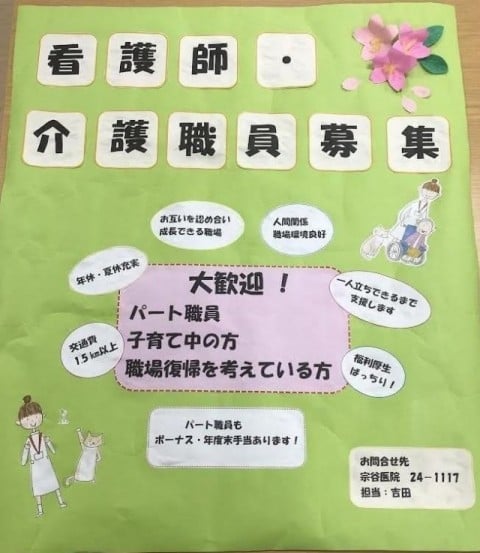 看護師・
介護職員募集
お互いを認め合い
成長できる職場
人間関係
職場環境良好
年休・夏休充実
一人立ちできるまで
支援します
大歓迎！
パート職員
子育て中の方
職場復帰を考えている方
交通費
1.5km以上
福利厚生
ばっちり！
パート職員も
ボーナス・年度末手当あります！
お問合せ先
宗谷医院 24－1117
担当：吉田